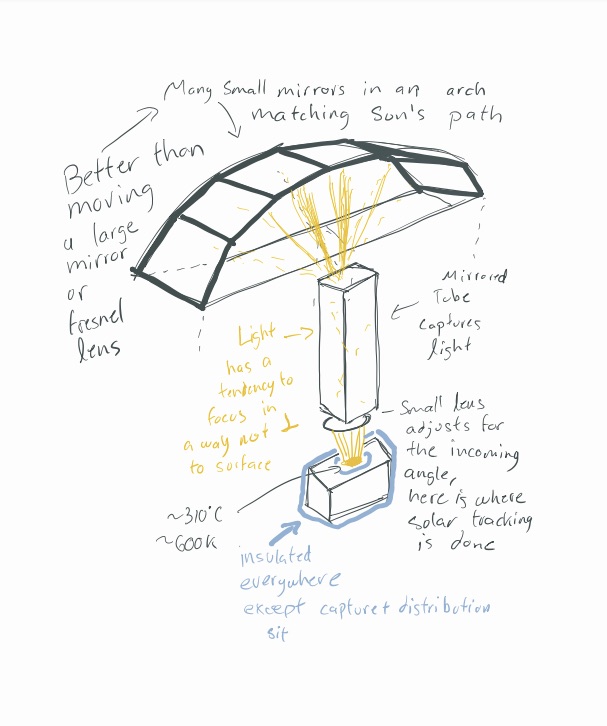 Many small mirrors in an arch
matching Sun's path
Better than
moving
a large
mirror
or
fresnel
lens
Mirrored
Tube
captures
light
Light
has a
tendency to
focus in
a way not ⊥
to surface
Small lens
adjusts for
the incoming
angle,
here is where
solar tracking
is done
~310°C
~600K
insulated
everywhere
except capture + distribution
sit